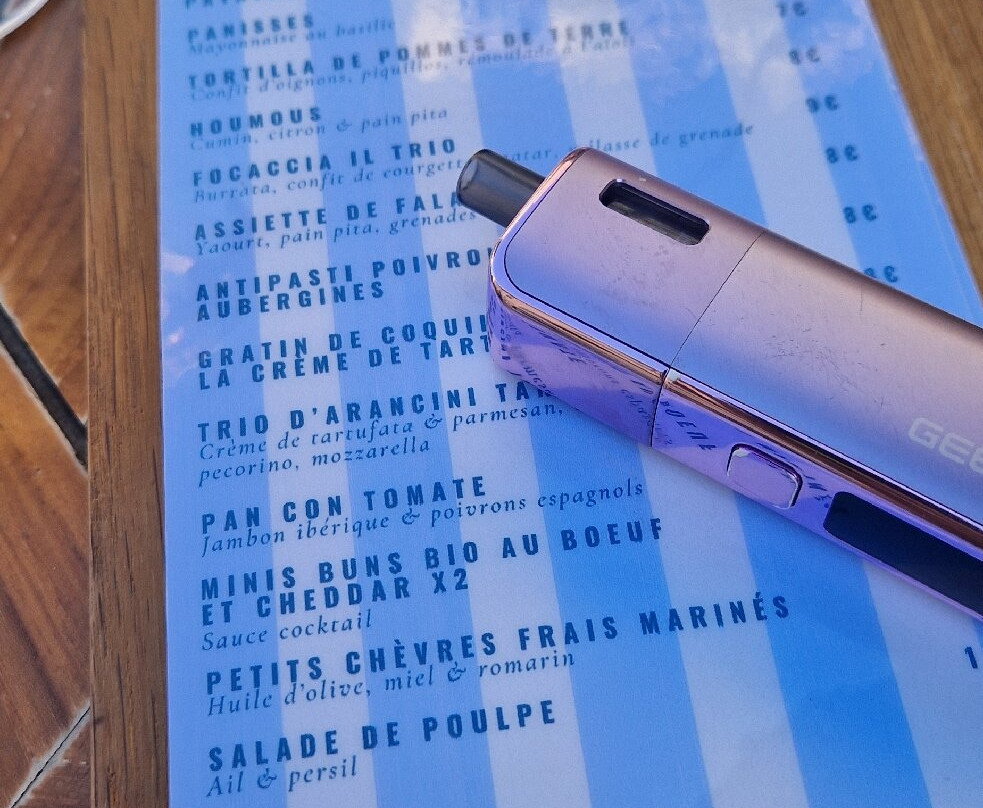 PANISSES 7€
Mayonnaise au basilic
TORTILLA DE POMMES DE TERRE 8€
Confit d'oignons, piquillos, rémoulade à l'aïoli
HOUMOUS 9€
Cumin, citron & pain pita
FOCACCIA IL TRIO 8€
Burrata, confit de courgett mélasse de grenade
ASSIETTE DE FALA 8€
Yaourt, pain pita, grenades
ANTIPASTI POIVRO 8€
AUBERGINES
GRATIN DE COQUIL
LA CRÈME DE TART
TRIO D'ARANCINI TAR
Crème de tartufata & parmesan,
pecorino, mozzarella
PAN CON TOMATE
Jambon ibérique & poivrons espagnols
MINIS BUNS BIO AU BOEUF
ET CHEDDAR X2
Sauce cocktail
PETITS CHÈVRES FRAIS MARINÉS 1
Huile d'olive, miel & romarin
SALADE DE POULPE
Ail & persil
GEE